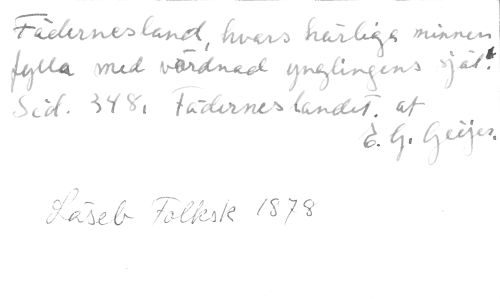 Fädernesland, hvars härliga minnen
fylla med vördnad ynglingens själ!
Sid. 348. Fäderneslandet. af
E. G. Geijer.
Läseb Folksk 1878